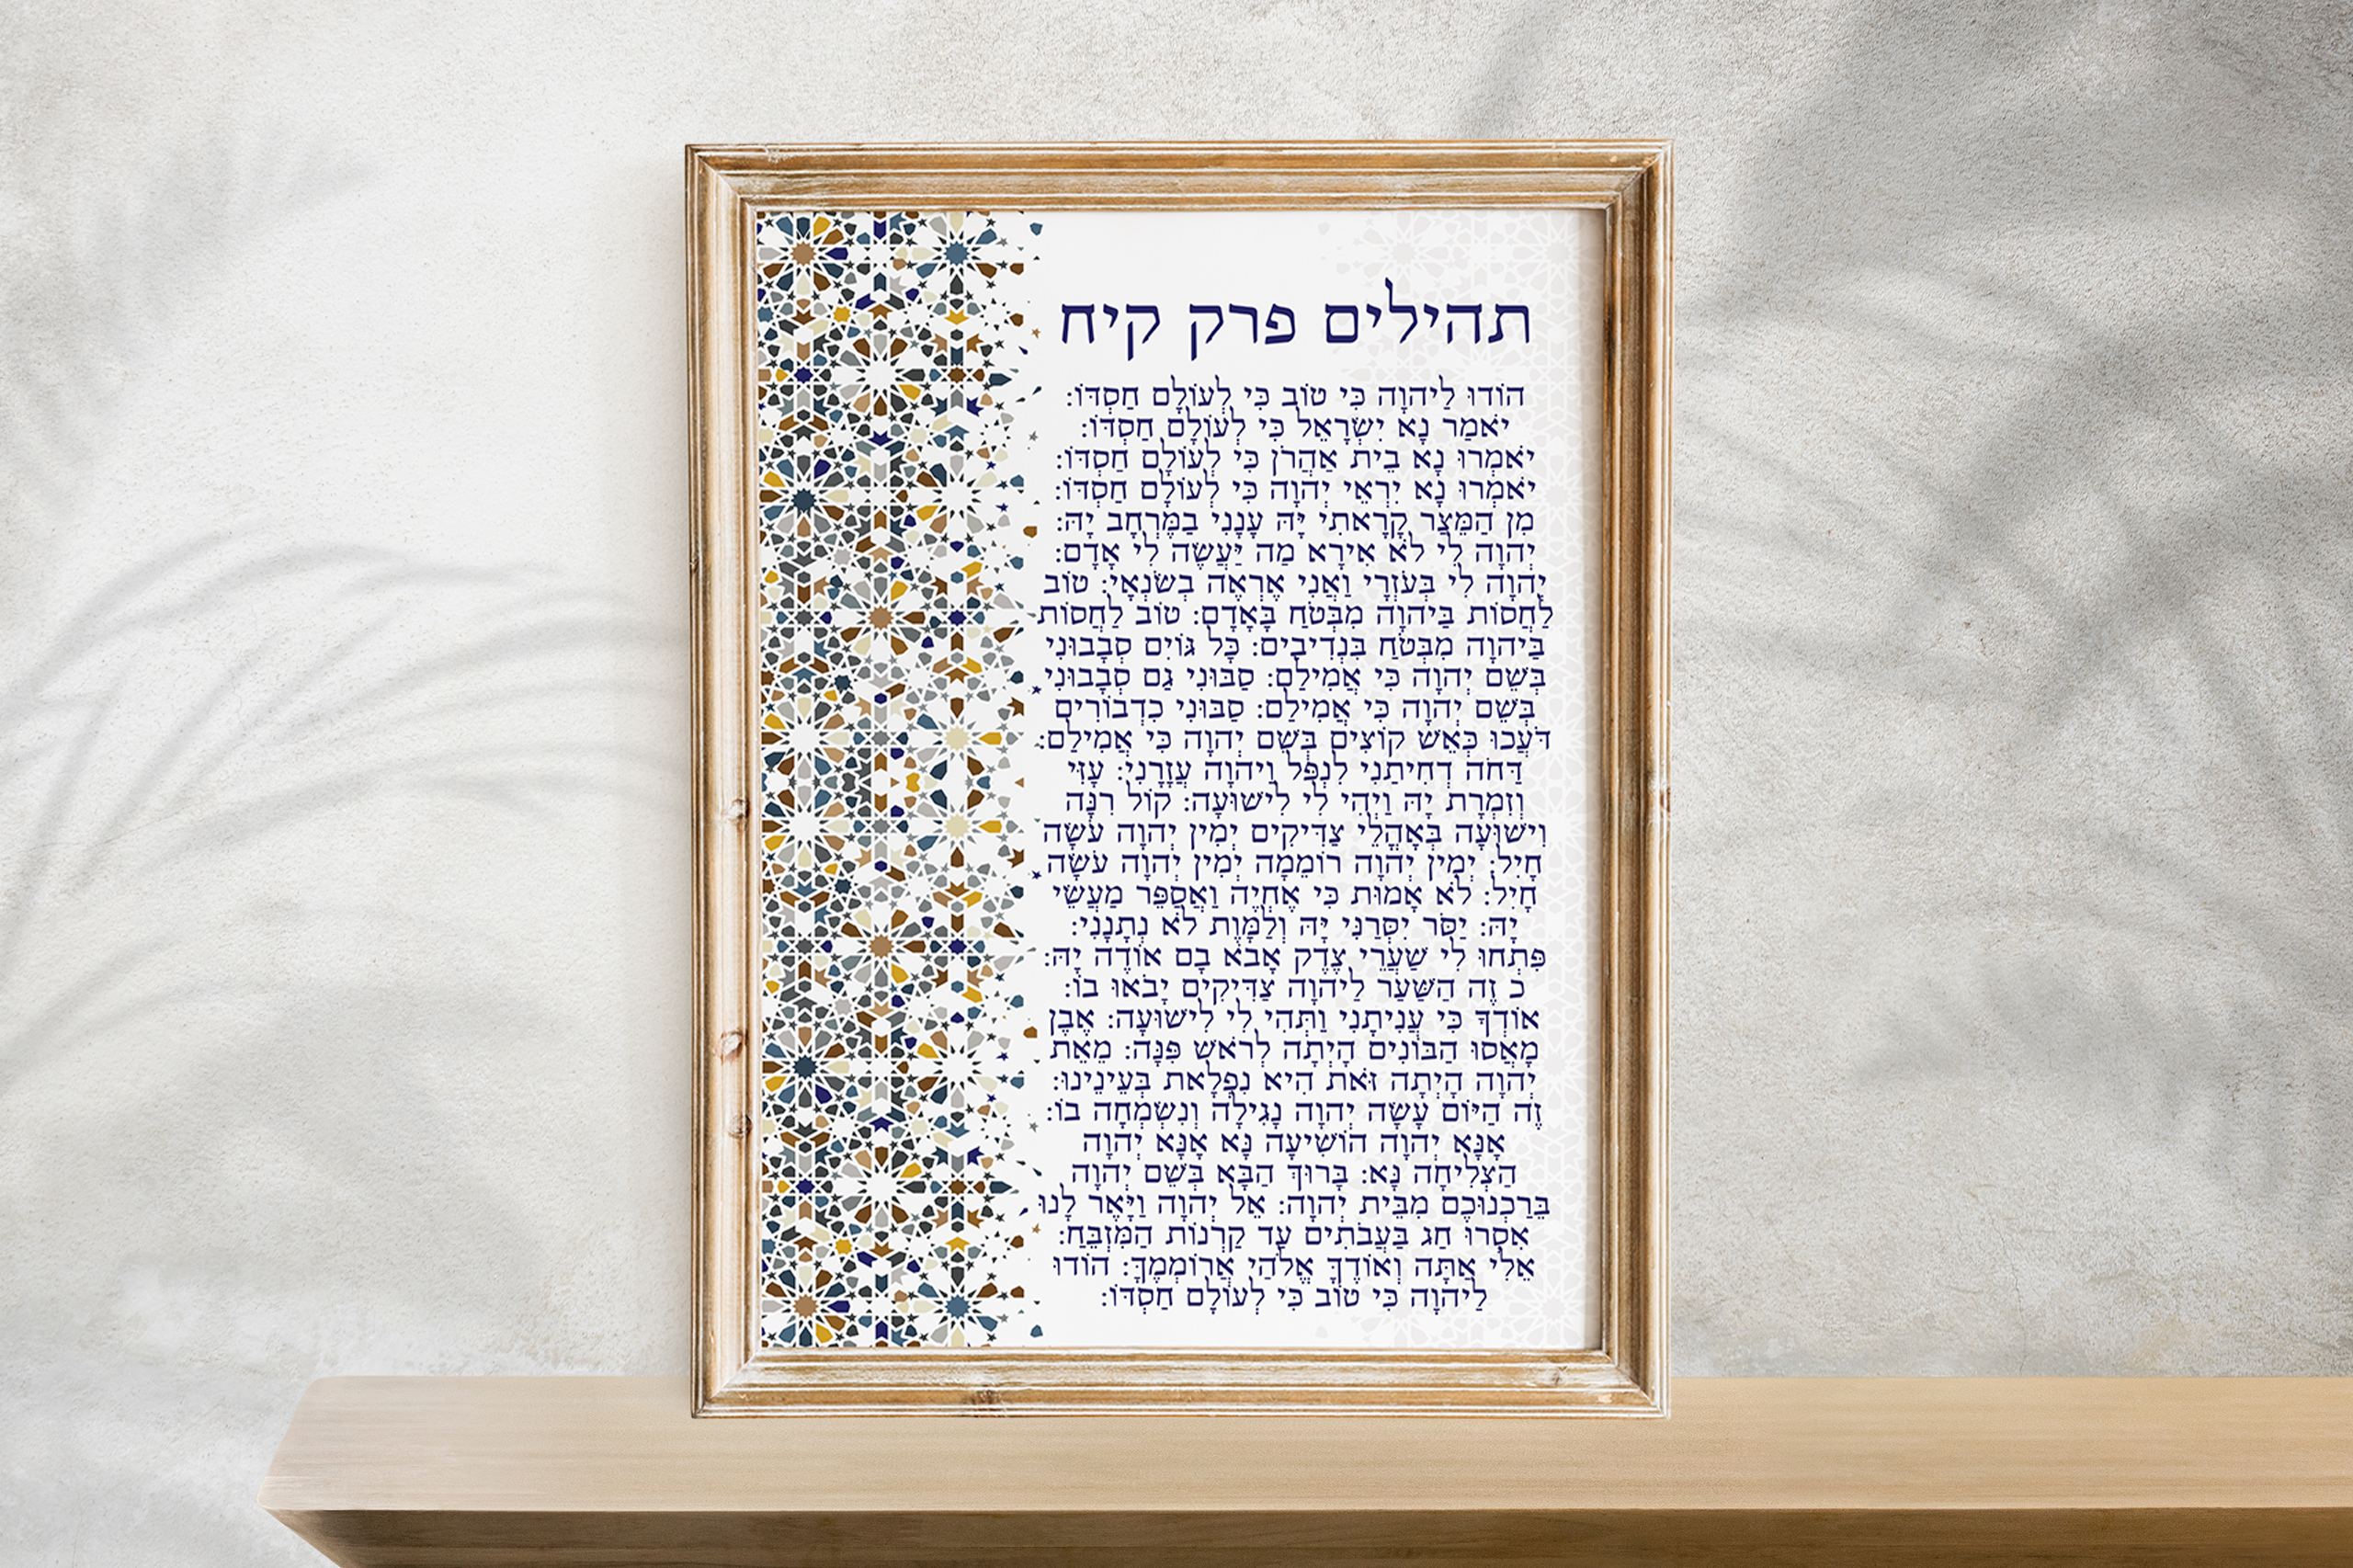 תהילים פרק קיח
הוֹדוּ לַיהוָה כִּי טוֹב כִּי לְעוֹלָם חַסְדּוֹ:
יֹאמַר נָא יִשְׂרָאֵל כִּי לְעוֹלָם חַסְדּוֹ:
יֹאמְרוּ נָא בֵית אַהֲרֹן כִּי לְעוֹלָם חַסְדּוֹ:
יֹאמְרוּ נָא יִרְאֵי יְהוָה כִּי לְעוֹלָם חַסְדּוֹ:
מִן הַמֵּצַר קָרָאתִי יָּהּ עָנָנִי בַמֶּרְחָב יָהּ:
יְהוָה לִי לֹא אִירָא מַה יַּעֲשֶׂה לִי אָדָם:
יְהוָה לִי בְּעֹזְרָי וַאֲנִי אֶרְאֶה בְשֹׂנְאָי: טוֹב
לַחֲסוֹת בַּיהוָה מִבְּטֹחַ בָּאָדָם: טוֹב לַחֲסוֹת
בַּיהוָה מִבְּטֹחַ בִּנְדִיבִים: כָּל גּוֹיִם סְבָבוּנִי
בְּשֵׁם יְהוָה כִּי אֲמִילַם: סַבּוּנִי גַם סְבָבוּנִי
בְּשֵׁם יְהוָה כִּי אֲמִילַם: סַבּוּנִי כִדְבוֹרִים
דֹּעֲכוּ כְּאֵשׁ קוֹצִים בְּשֵׁם יְהוָה כִּי אֲמִילַם:
דַּחֹה דְחִיתַנִי לִנְפֹּל וַיהוָה עֲזָרָנִי: עָזִּי
וְזִמְרָת יָהּ וַיְהִי לִי לִישׁוּעָה: קוֹל רִנָּה
וִישׁוּעָה בְּאָהֳלֵי צַדִּיקִים יְמִין יְהוָה עֹשָׂה
חָיִל: יְמִין יְהוָה רוֹמֵמָה יְמִין יְהוָה עֹשָׂה
חָיִל: לֹא אָמוּת כִּי אֶחְיֶה וַאֲסַפֵּר מַעֲשֵׂי
יָהּ: יַסֹּר יִסְּרַנִּי יָּהּ וְלַמָּוֶת לֹא נְתָנָנִי:
פִּתְחוּ לִי שַׁעֲרֵי צֶדֶק אָבֹא בָם אוֹדֶה יָהּ:
כ זֶה הַשַּׁעַר לַיהוָה צַדִּיקִים יָבֹאוּ בוֹ:
אוֹדְךָ כִּי עֲנִיתָנִי וַתְּהִי לִי לִישׁוּעָה: אֶבֶן
מָאֲסוּ הַבּוֹנִים הָיְתָה לְרֹאשׁ פִּנָּה: מֵאֵת
יְהוָה הָיְתָה זֹּאת הִיא נִפְלָאת בְּעֵינֵינוּ:
זֶה הַיּוֹם עָשָׂה יְהוָה נָגִילָה וְנִשְׂמְחָה בוֹ:
אָנָּא יְהוָה הוֹשִׁיעָה נָּא אָנָּא יְהוָה
הַצְלִיחָה נָּא: בָּרוּךְ הַבָּא בְּשֵׁם יְהוָה
בֵּרַכְנוּכֶם מִבֵּית יְהוָה: אֵל יְהוָה וַיָּאֶר לָנוּ
אִסְרוּ חַג בַּעֲבֹתִים עַד קַרְנוֹת הַמִּזְבֵּחַ:
אֵלִי אַתָּה וְאוֹדֶךָּ אֱלֹהַי אֲרוֹמְמֶךָּ: הוֹדוּ
לַיהוָה כִּי טוֹב כִּי לְעוֹלָם חַסְדּוֹ: